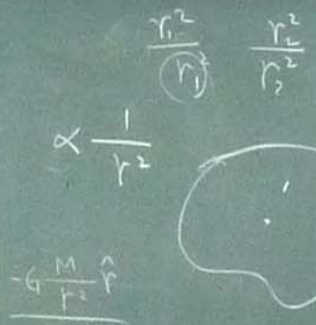 r₁²/r₁² r₂²/r₂²
∝ 1/r²
-G M/r² r̂